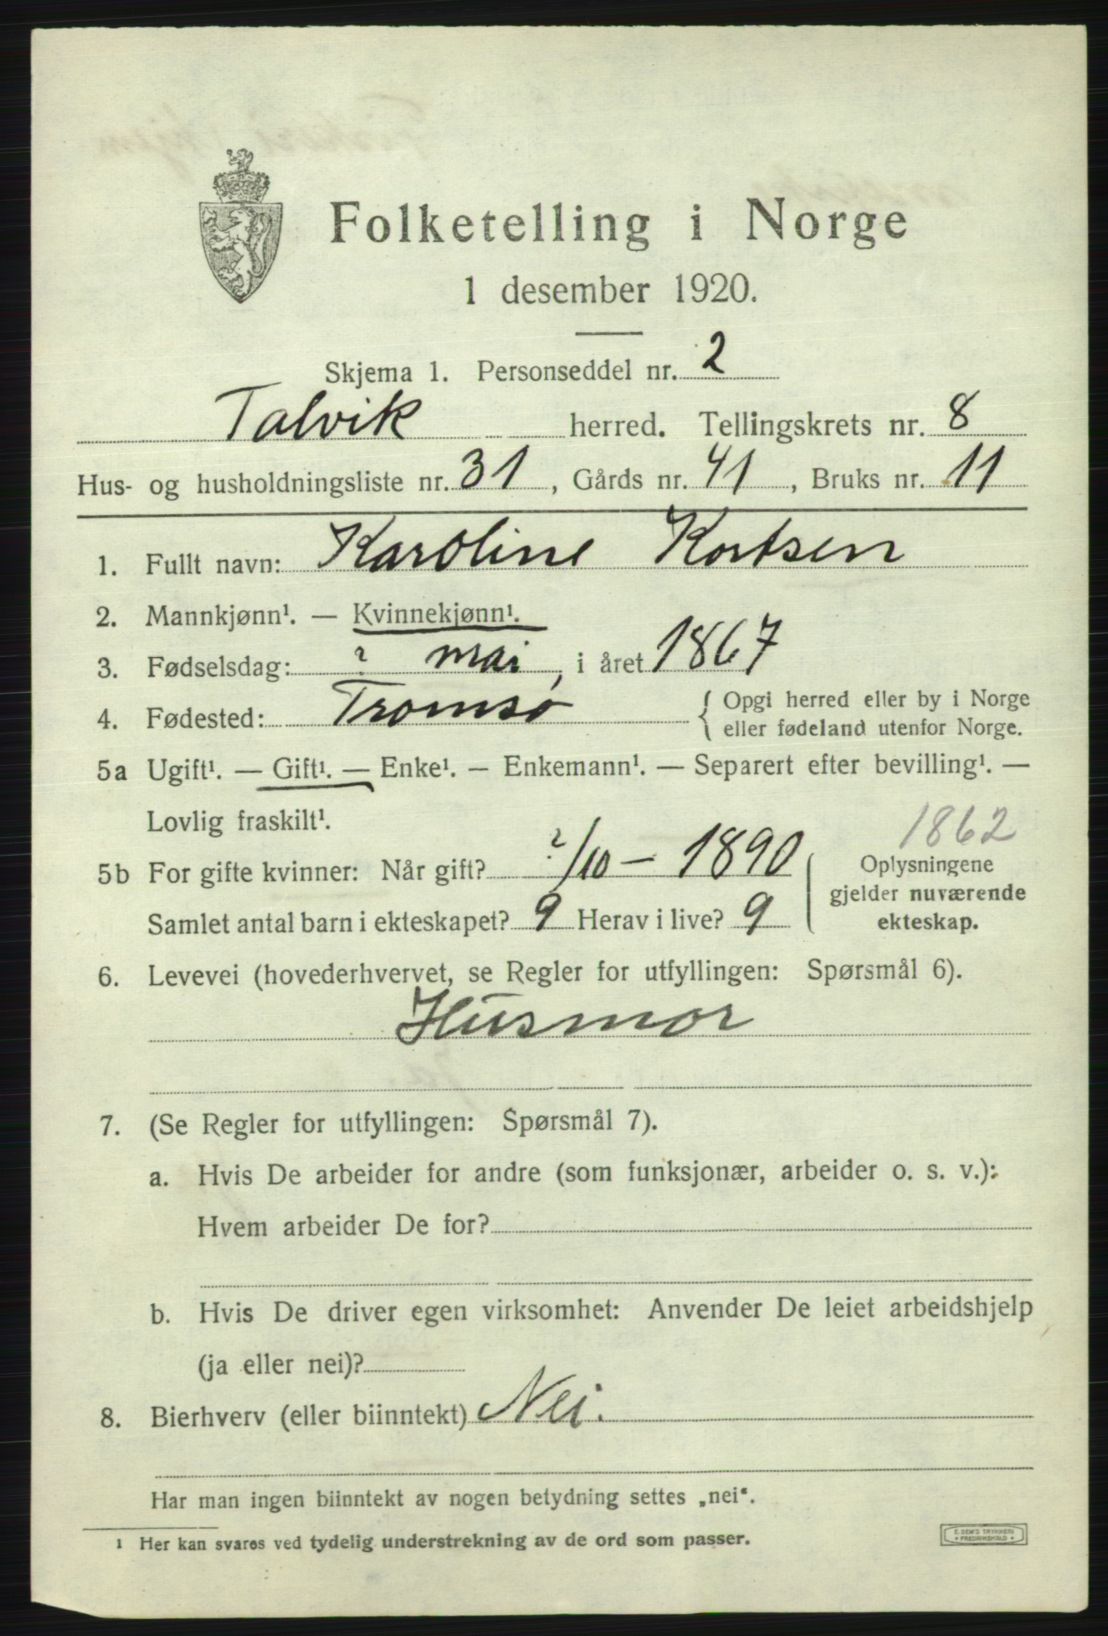 Folketelling i Norge
1 desember 1920.
Skjema 1. Personseddel nr. 2
Talvik herred. Tellingskrets nr. 8
Hus- og husholdningsliste nr. 31, Gårds nr. 41, Bruks nr. 11
1. Fullt navn: Karoline Kortsen
2. Mannkjønn¹. — Kvinnekjønn¹.
3. Fødselsdag: ? mai, i året 1867
4. Fødested: Tromsø { Opgi herred eller by i Norge
eller fødeland utenfor Norge.
5a Ugift¹. — Gift¹. — Enke¹. — Enkemann¹. — Separert efter bevilling¹. —
Lovlig fraskilt¹.
1862
5b For gifte kvinner: Når gift? ?/10 — 1890
Samlet antal barn i ekteskapet? 9 Herav i live? 9
Oplysningene
gjelder nuværende
ekteskap.
6. Levevei (hovederhvervet, se Regler for utfyllingen: Spørsmål 6).
Husmor
7. (Se Regler for utfyllingen: Spørsmål 7).
a. Hvis De arbeider for andre (som funksjonær, arbeider o. s. v.):
Hvem arbeider De for?
b. Hvis De driver egen virksomhet: Anvender De leiet arbeidshjelp
(ja eller nei)?
8. Bierhverv (eller biinntekt) Nei.
Har man ingen biinntekt av nogen betydning settes „nei“.
¹ Her kan svares ved tydelig understrekning av de ord som passer.